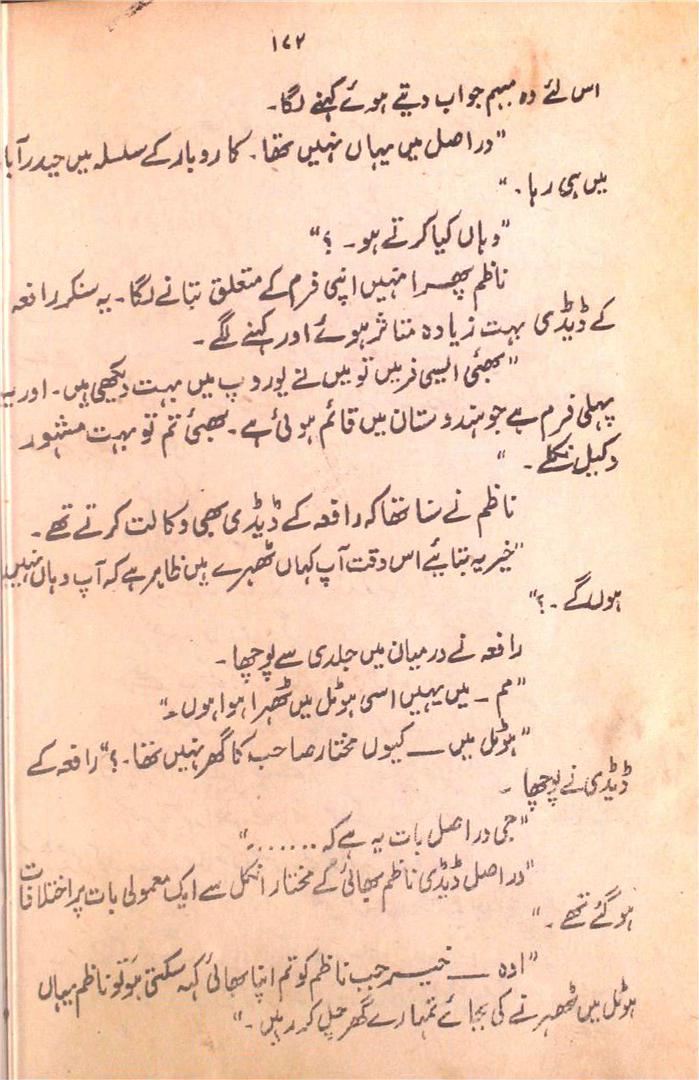 ۱۷۲
اس لئے وہ مبہم جواب دیتے ہوئے کہنے لگا۔
"دراصل میں یہاں نہیں تھا۔ کاروبار کے سلسلہ میں حیدرآبا
میں ہی رہا۔"
"وہاں کیا کرتے ہو۔ ؟"
ناظم پھر انہیں اپنی فرم کے متعلق بتانے لگا۔ یہ سنکر رافعہ
کے ڈیڈی بہت زیادہ متاثر ہوئے اور کہنے لگے۔
"بھئی ایسی فرمیں تو میں نے یوروپ میں بہت دیکھی ہیں۔ اور یہ
پہلی فرم ہے جو ہندوستان میں قائم ہوئی ہے۔ بھئی تم تو بہت مشہور
وکیل نکلے۔ "
ناظم نے سنا تھا کہ رافعہ کے ڈیڈی بھی وکالت کرتے تھے۔
"خیر یہ بتایئے اس وقت آپ کہاں ٹھہرے ہیں ظاہر ہے کہ آپ وہاں نہیں
ہوں گے۔ ؟"
رافعہ نے درمیان میں جلدی سے پوچھا۔
"مم ۔ میں یہیں اسی ہوٹل میں ٹھہرا ہوا ہوں۔"
"ہوٹل میں ـــ کیوں مختار صاحب کا گھر نہیں تھا۔ ؟" رافعہ کے
ڈیڈی نے پوچھا ۔
"جی دراصل بات یہ ہے کہ ........"
"دراصل ڈیڈی ناظم بھائی کے مختار انکل سے ایک معمولی بات پر اختلافات
ہو گئے تھے۔ "
"اوہ ـــ خیر جب ناظم کو تم اپنا بھائی کہہ سکتی ہو تو ناظم یہاں
ہوٹل میں ٹھہرنے کی بجائے تمہارے گھر چل کر رہیں۔"